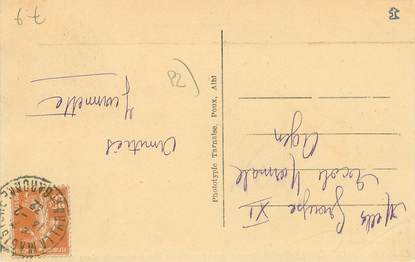 Amitiés
Yvonnette
Phototype Tarnaise, Poux, Albi
Melle
Groupe XI
Ecole Normale
Agen
82
7-9